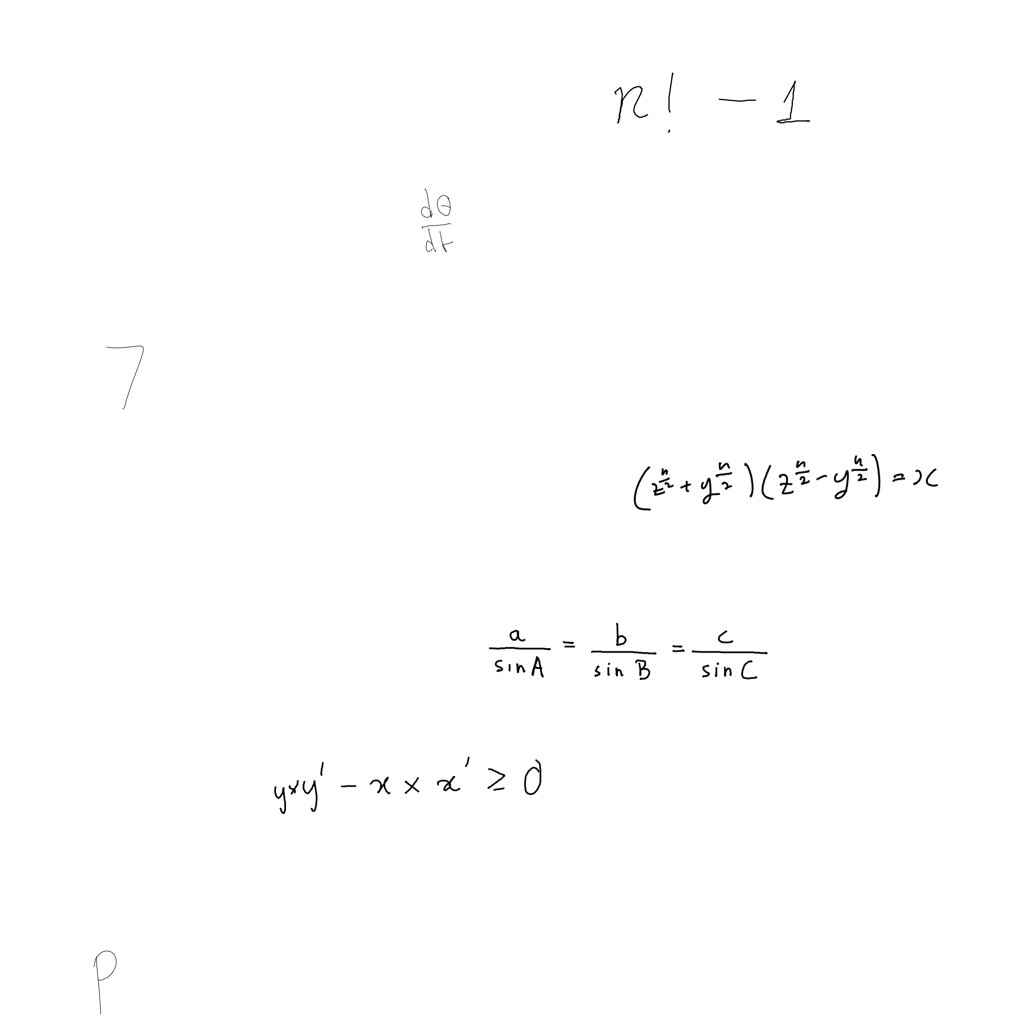 n! - 1
dθ/dt
7
(z^{n/2} + y^{n/2})(z^{n/2} - y^{n/2}) = x
a/sin A = b/sin B = c/sin C
y×y' - x × x' ≥ 0
p